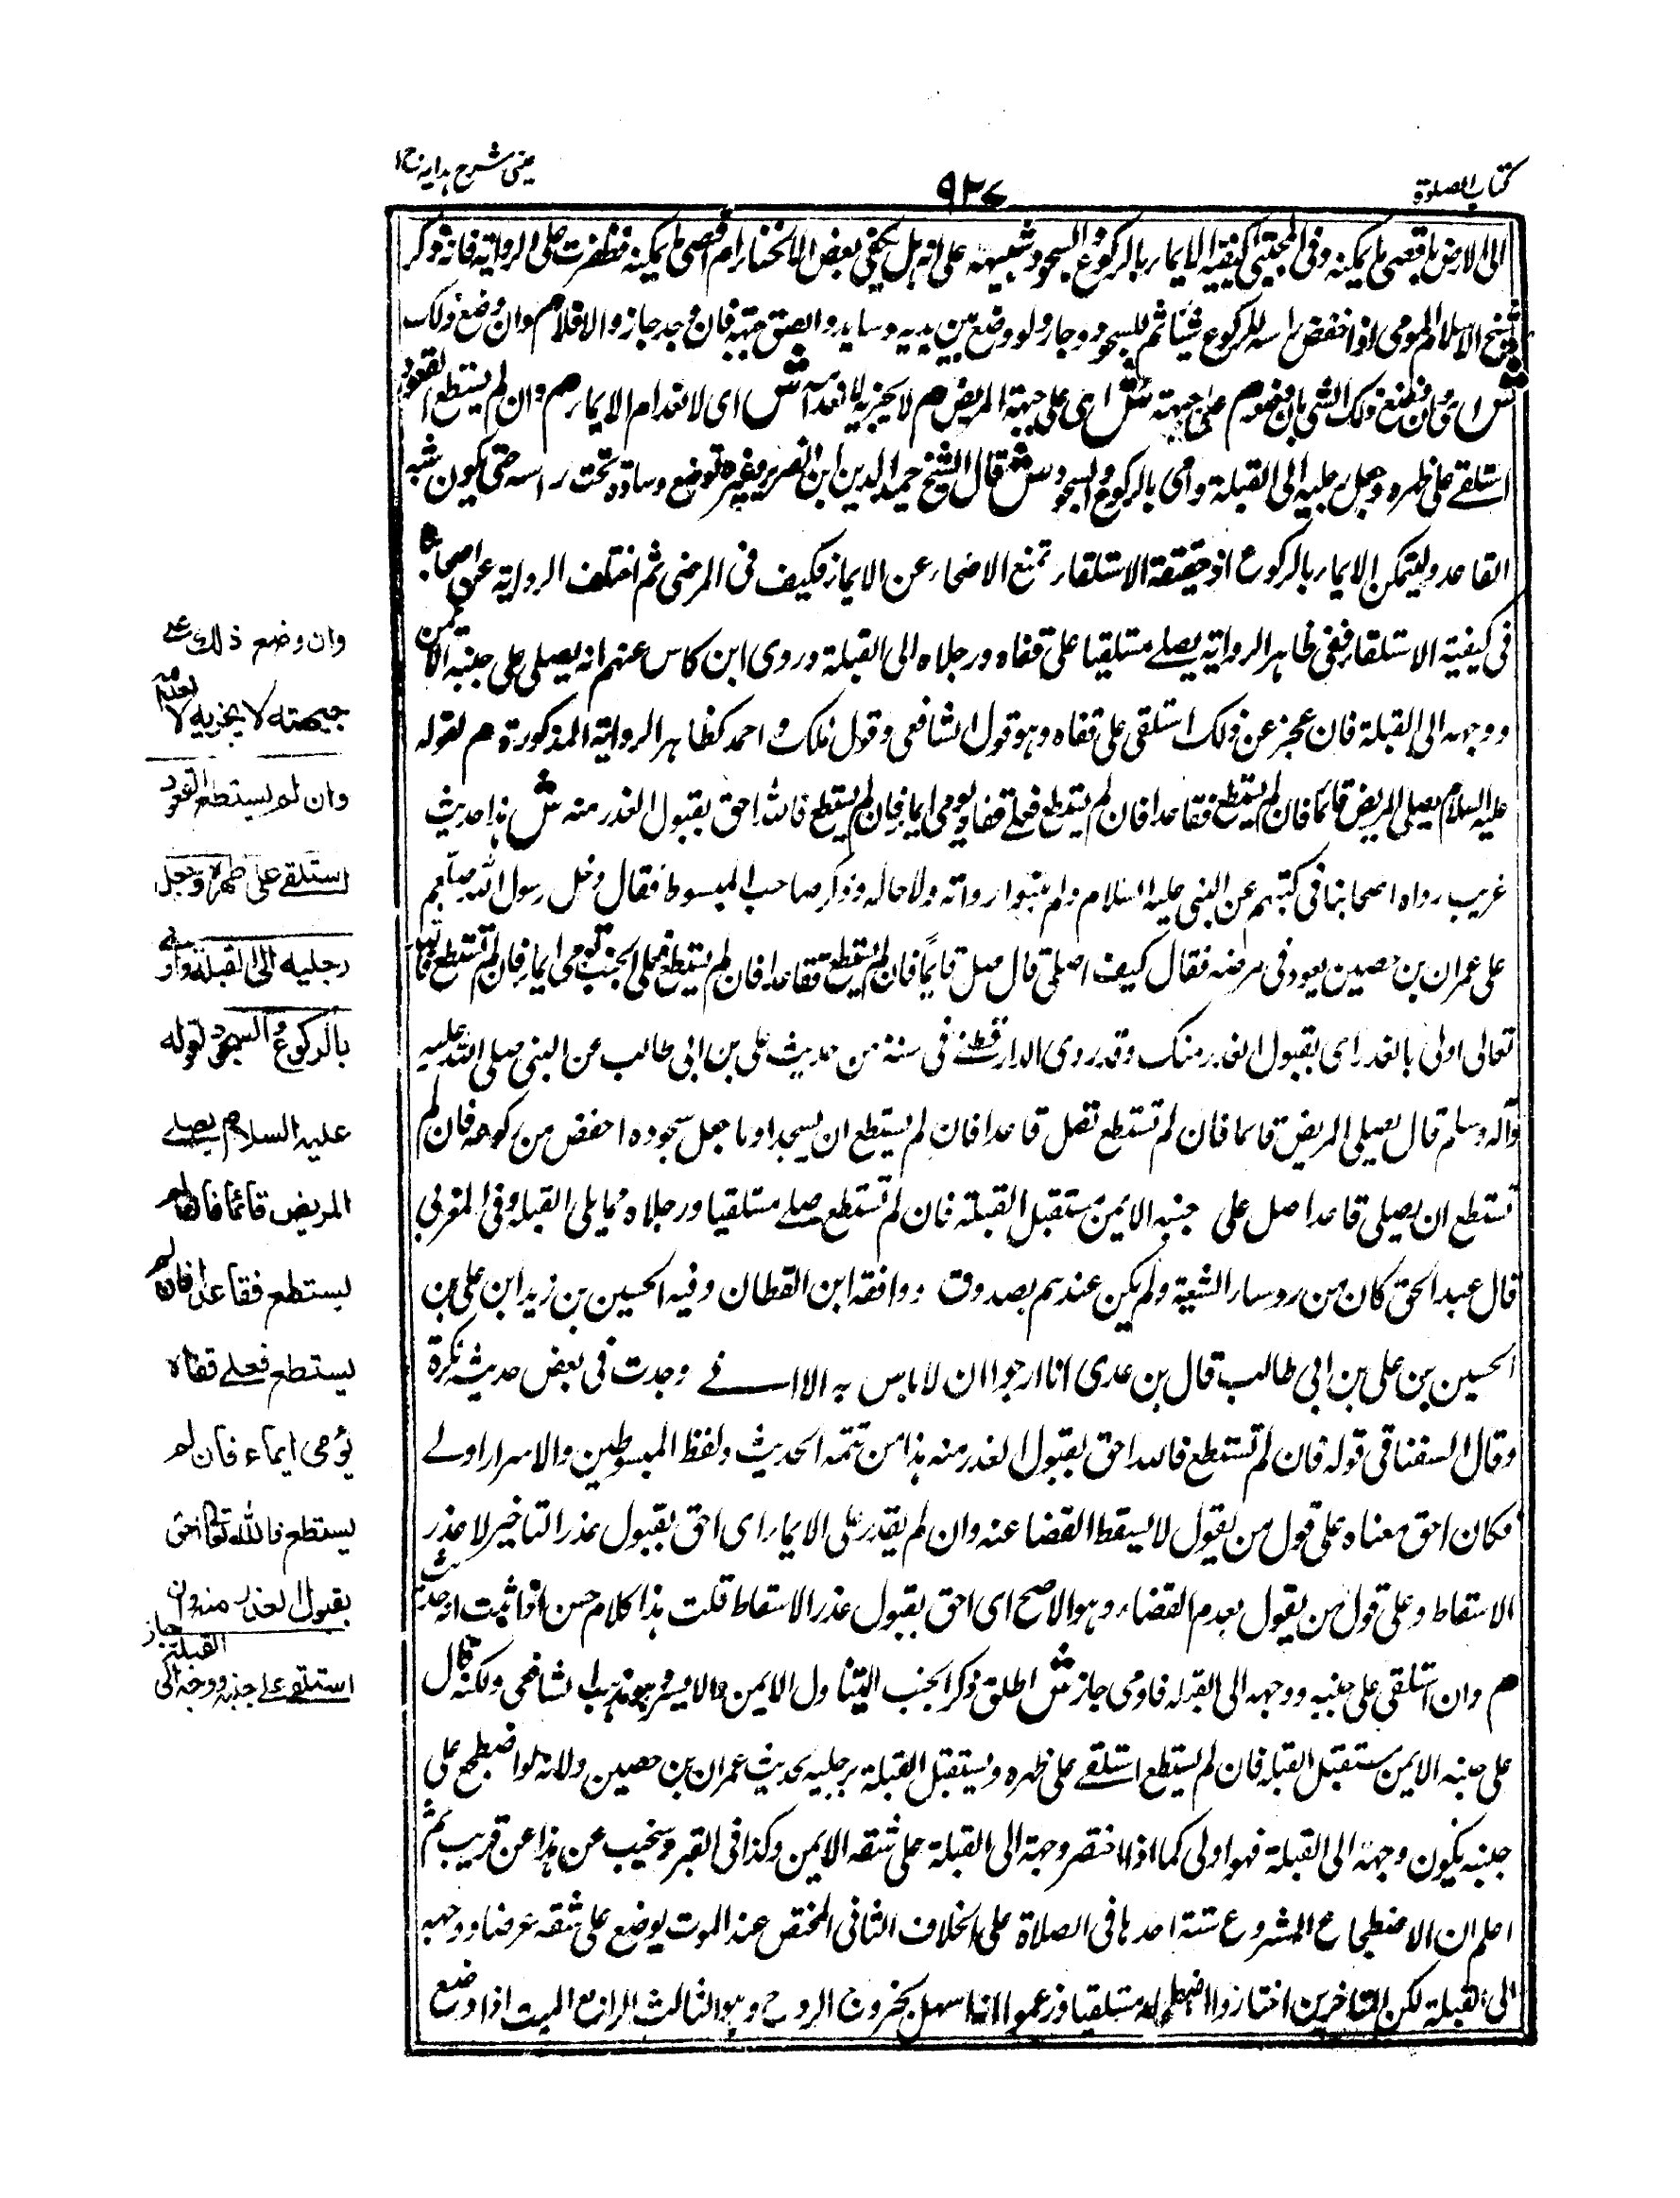 كتاب الصلوة
٩٣٧
عينى شرح هدايه ج ا
الى الارض باقصى ما يمكنه وفى المجتبى كيفية الايمار بالركوع والسجود شبيهه على انه هل يكفى بعض الانحنار ام اقصى ما يمكنه فظفرت على الرواية فانه ذكر
شيخ الاسلام المومى اذا خفض راسه للركوع شيئا ثم للسجود جاز ولو وضع بين يديه وسايد والصق جبهته فان وجد جاز والا فلا م وان وضع ذلك
ش اى وان وضع ذلك الشى بان وضعه م على جبهته ش اى على جبهة المريض م لا يجزيه لانعدامه ش اى لانعدام الايمار م وان لم يستطع القعود
استلقى على ظهره وجعل رجليه الى القبلة واومى بالركوع والسجود ش قال الشيخ حميد الدين ابن الضرير وغيره توضع وسادة تحت راسه حتى يكون شبه
القاعد وليتمكن الايمار بالركوع اذ حقيقة الاستلقار تمنع الاصحار عن الايمار فكيف فى المرضى ثم اختلف الرواية عن اصحابنا
فى كيفية الاستلقار ففى ظاهر الرواية يصلے مستلقيا على قفاه ورجلاه الى القبلة وروى ابن كاس عنهم انه يصلى على جنبه الايمن
ووجهه الى القبلة فان عجز عن ذلك استلقى على قفاه وهو قول الشافعى وقول مالك و احمد كظاهر الرواية المذكورة م لقوله
عليه السلام يصلى المريض قائما فان لم يستطع فقاعدا فان لم يستطع فعلى قفاه يومى ايمار فان لم يستطع فالله احق بقبول العذر منه ش هذا حديث
غريب رواه اصحابنا فى كتبهم عن النبى عليه السلام ولم يثبتوا رواته ولا حاله وذكر صاحب المبسوط فقال دخل رسول الله صلعم
على عمران بن حصين يعود فى مرضه فقال كيف اصلى قال صل قائمًا فان لم تستطع فقاعدا فان لم تستطع فعلى الجنب تومى ايمار فان لم تستطع فالله
تعالى اولى بالعذر اى بقبول العذر منك وقد روى الدارقطنے فى سننه من حديث على بن ابى طالب عن النبى صلى الله عليه
وآله وسلم قال يصلى المريض قائما فان لم تستطع تصل قاعدا فان لم يستطع ان يسجد اوما جعل سجوده اخفض من ركوعه فان لم
تستطع ان يصلى قاعدا صل على جنبه الايمن مستقبل القبلة فان لم تستطع صلے مستلقيا ورجلاه مما يلى القبله وفى المغربى
قال عبد الحق كان من روسار الشيعة ولم يكن عندهم بصدوق ووافقه ابن القطان وفيه الحسين بن زيد ابن على بن
الحسين بن على بن ابى طالب قال بن عدى انا ارجوا ان لا باس به الا انے وجدت فى بعض حديثه نكرة
وقال السفناقى قوله فان لم تستطع فالله احق بقبول العذر منه هذا من تتمه الحديث ولفظ المبسوطين والاسرار اولے
فكان احق معناه على قول من يقول لا يسقط القضا عنه وان لم يقدر على الايمار اى احق بقبول عذر التاخير لا عذر
الاسقاط وعلى قول من يقول بعدم القضاء وهو الاصح اى احق بقبول عذر الاسقاط قلت هذا كلام حسن اذا ثبت انه حديث
م وان استلقى على جنبه ووجهه الى القبله فاومى جاز ش اطلق ذكر الجنب ليتناول الايمن والايسر وهو مذهب الشافعى ولكنه قال
على جنبه الايمن مستقبل القبله فان لم يستطع استلقے على ظهره ويستقبل القبلة برجليه بحديث عمران بن حصين ولانه لو اضطجع على
جنبه يكون وجهه الى القبلة فهو اولى كما اذا احتضر وجهه الى القبلة على شقه الايمن وكذا فى القبر وسنجيب عن هذا عن قريب ثم
اعلم ان الاضطجاع المشروع ستة احدها فى الصلاة على الخلاف الثانى المختص عند الموت يوضع على شقه عرضا ووجهه
الى القبلة لكن المتاخرين اختاروا مستلقيا وزعموا انه اسهل بخروج الروح وهو الثالث الرابع الميت اذا وضع
وان وضع ذلك علے
جبهته لا يجزيه لانعدامه
وان لم يستطع القعود
استلقے على ظهره وجعل
رجليه الى القبلة واومى
بالركوع والسجود لقوله
عليه السلام يصلے
المريض قائما فان لم
يستطع فقاعدا فان لم
يستطع فعلے قفاه
يؤمى ايماء فان لم
يستطع فالله تعالى احق
بقبول العذر منه وان
استلقے علے جنبه ووجهه الى
القبلة جاز